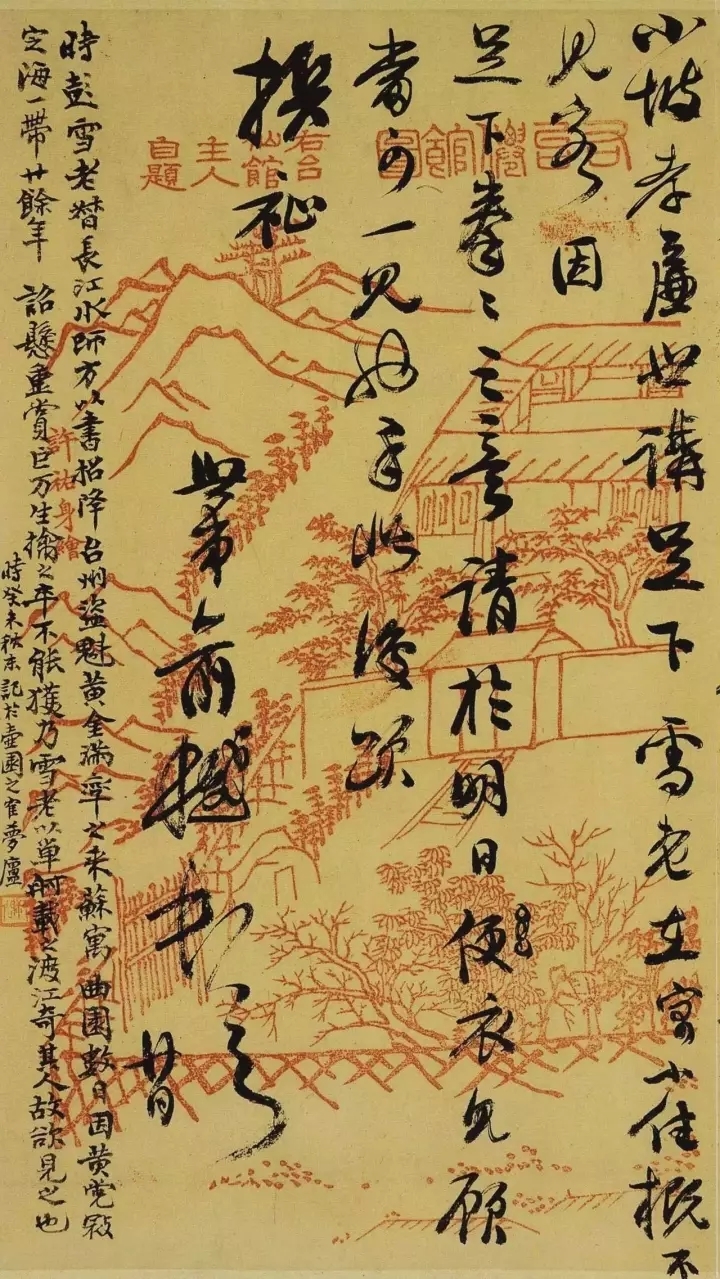 小坡孝廉世講足下雪老在寓小住概不
見客因
足下拳〻之意請於明日便衣見顧
當可一見也手此復頌
撰祉
世弟俞樾頓首
廿日
右台僊館啚
右台仙館主人自題
許祐身繪
時彭雪老督長江水師方以書招降台州盜魁黃金滿率之來蘇寓曲園數日因黃党㓂
定海一帶廿餘年 詔懸重賞巨万生擒之卒不能獲乃雪老以單舸載之渡江奇其人故欲見之也
時癸未秋末記於壺園之寉夢廬